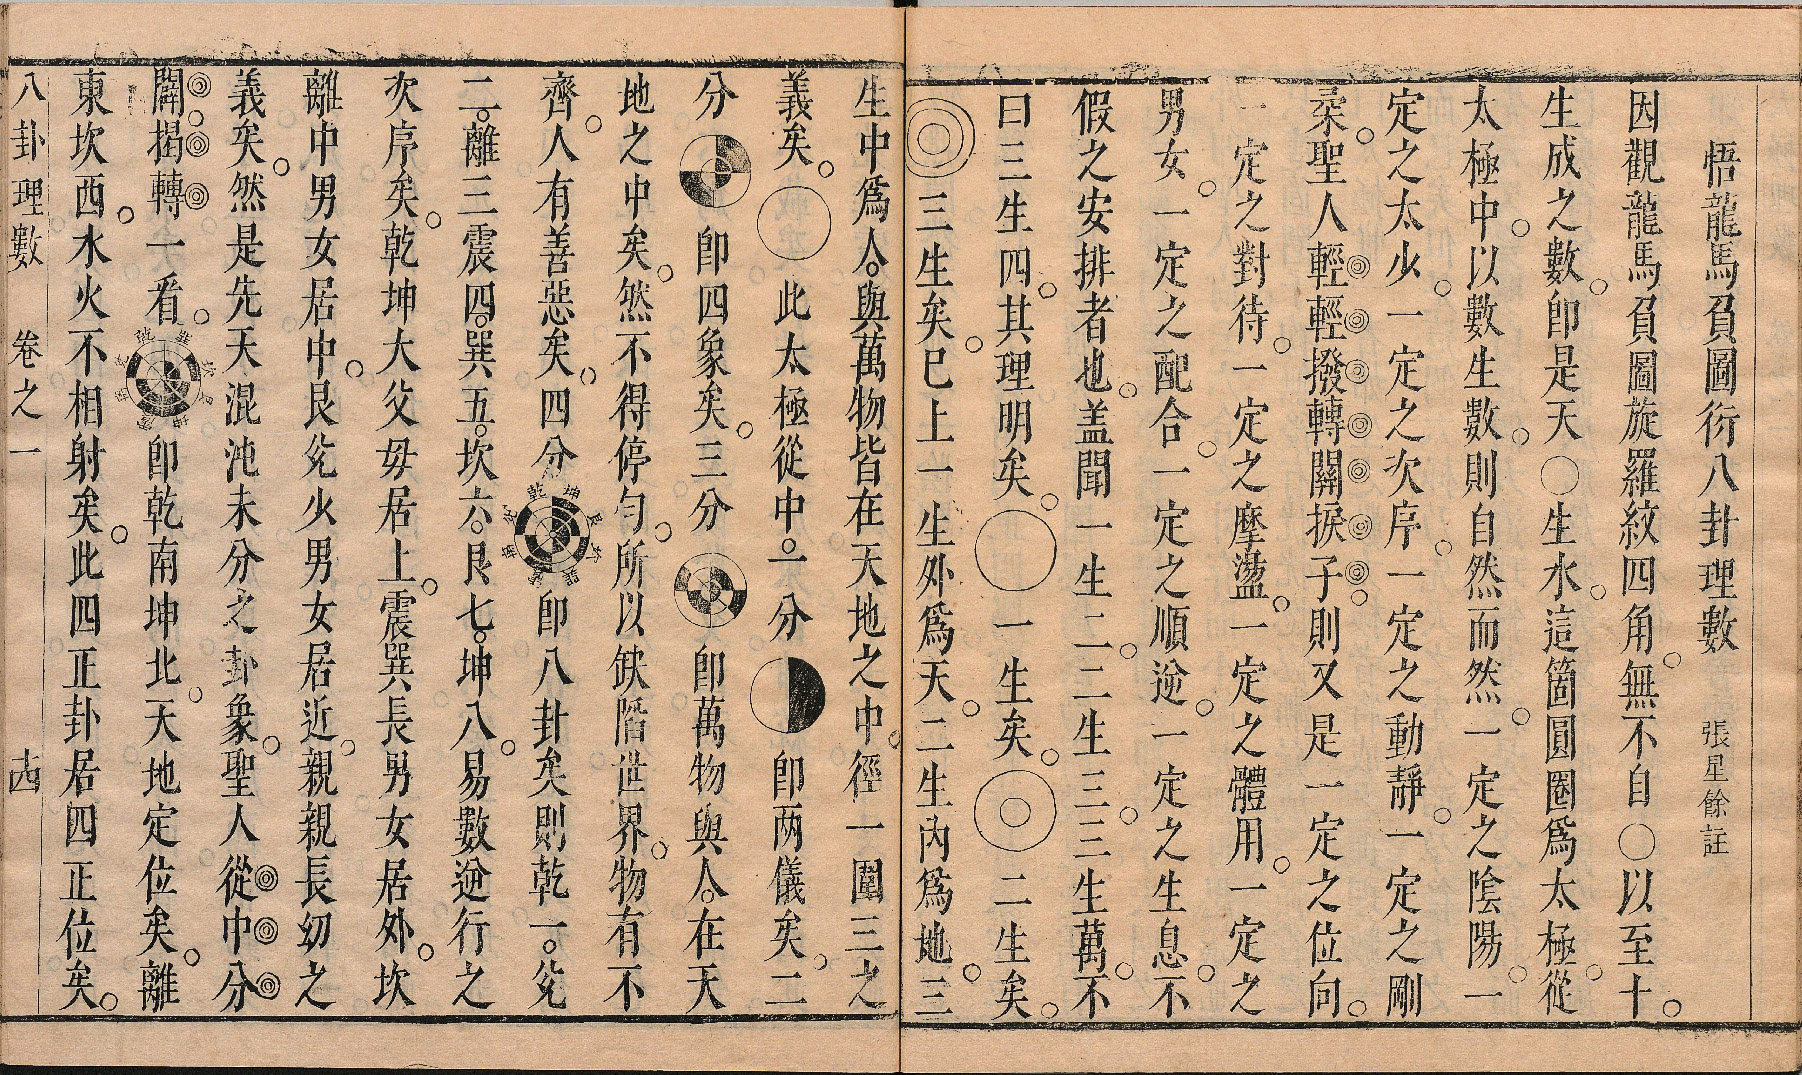 悟龍馬負圖衍八卦理數 張星餘註
因觀龍馬負圖旋羅紋四角無不自〇以至十
生成之數卽是天〇生水這箇圓圈爲太極從
太極中以數生數則自然而然一定之陰陽一
定之太少一定之次序一定之動靜一定之剛
柔聖人輕輕撥轉關捩子則又是一定之位向
一定之對待一定之摩盪一定之體用一定之
男女一定之配合一定之順逆一定之生息不
假之安排者也盖聞一生二二生三三生萬不
曰三生四其理明矣〇一生矣◎二生矣
◎三生矣巳上一生外爲天二生內爲地三
生中爲人與萬物皆在天地之中徑一圍三之
義矣〇此太極從中一分卽兩儀矣二
分卽四象矣三分卽萬物與人在天
地之中矣然不得停勻所以缺陷世界物有不
齊人有善惡矣四分卽八卦矣則乾一兊
二離三震四巽五坎六艮七坤八易數逆行之
次序矣乾坤大父毋居上震巽長男女居外坎
離中男女居中艮兊少男女居近親親長幼之
義矣然是先天混沌未分之卦象聖人從中分
闢揭轉一看卽乾南坤北天地定位矣離
東坎西水火不相射矣此四正卦居四正位矣
八卦理數 卷之一 十四